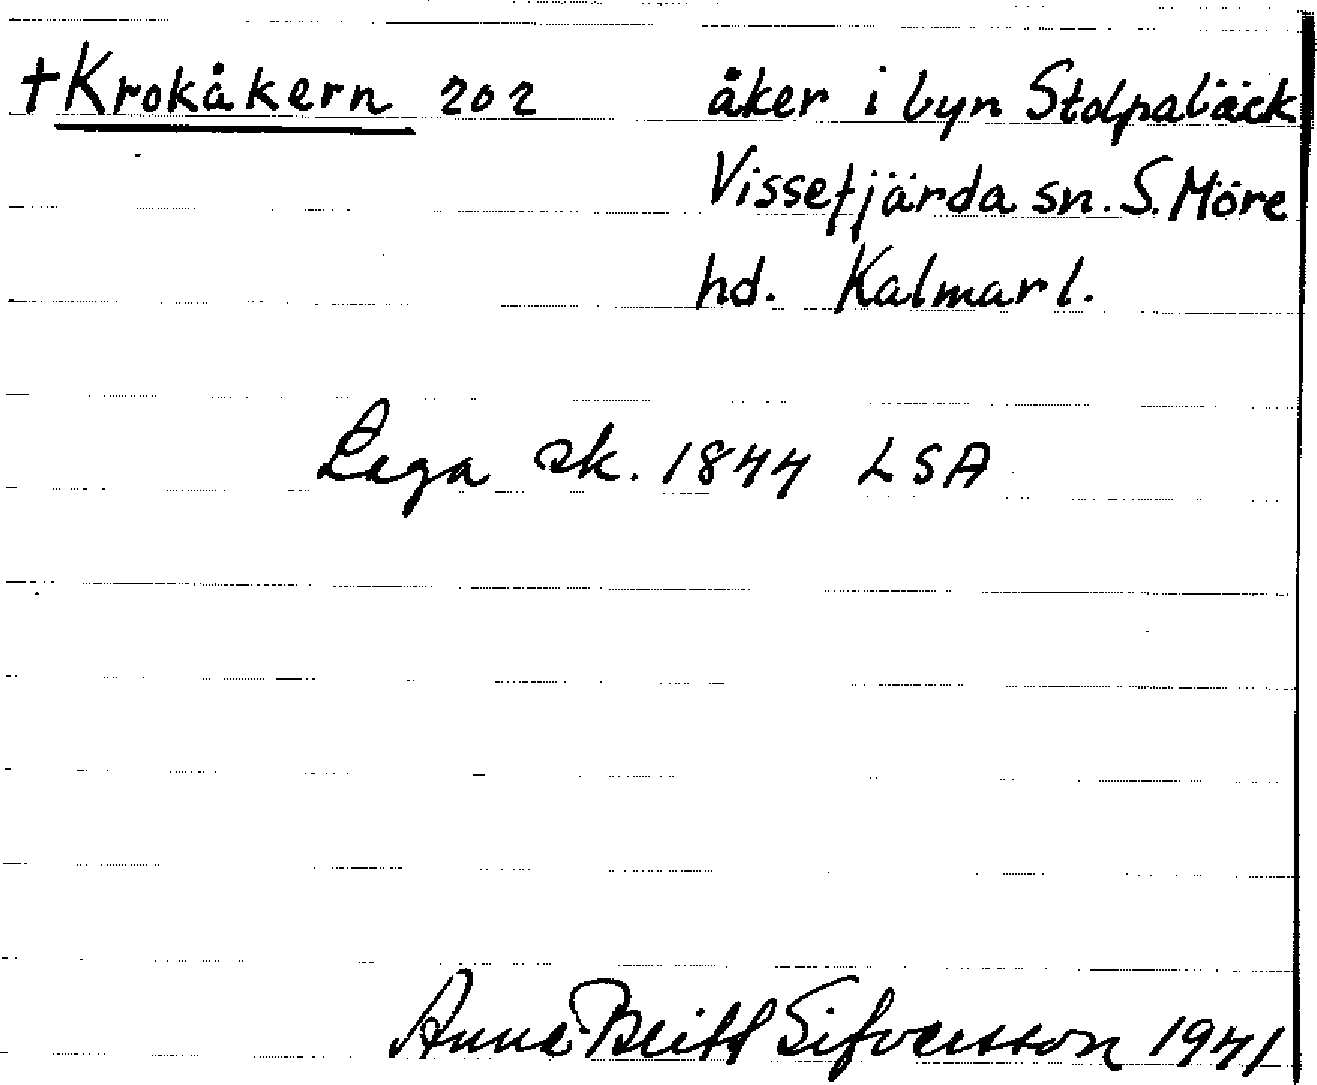 †Krokåkern 202 åker i byn Stolpabäck
Vissefjärda sn. S. Möre
hd. Kalmar l.
Laga sk. 1844 LSA
Anna-Britt Sifversson 1941